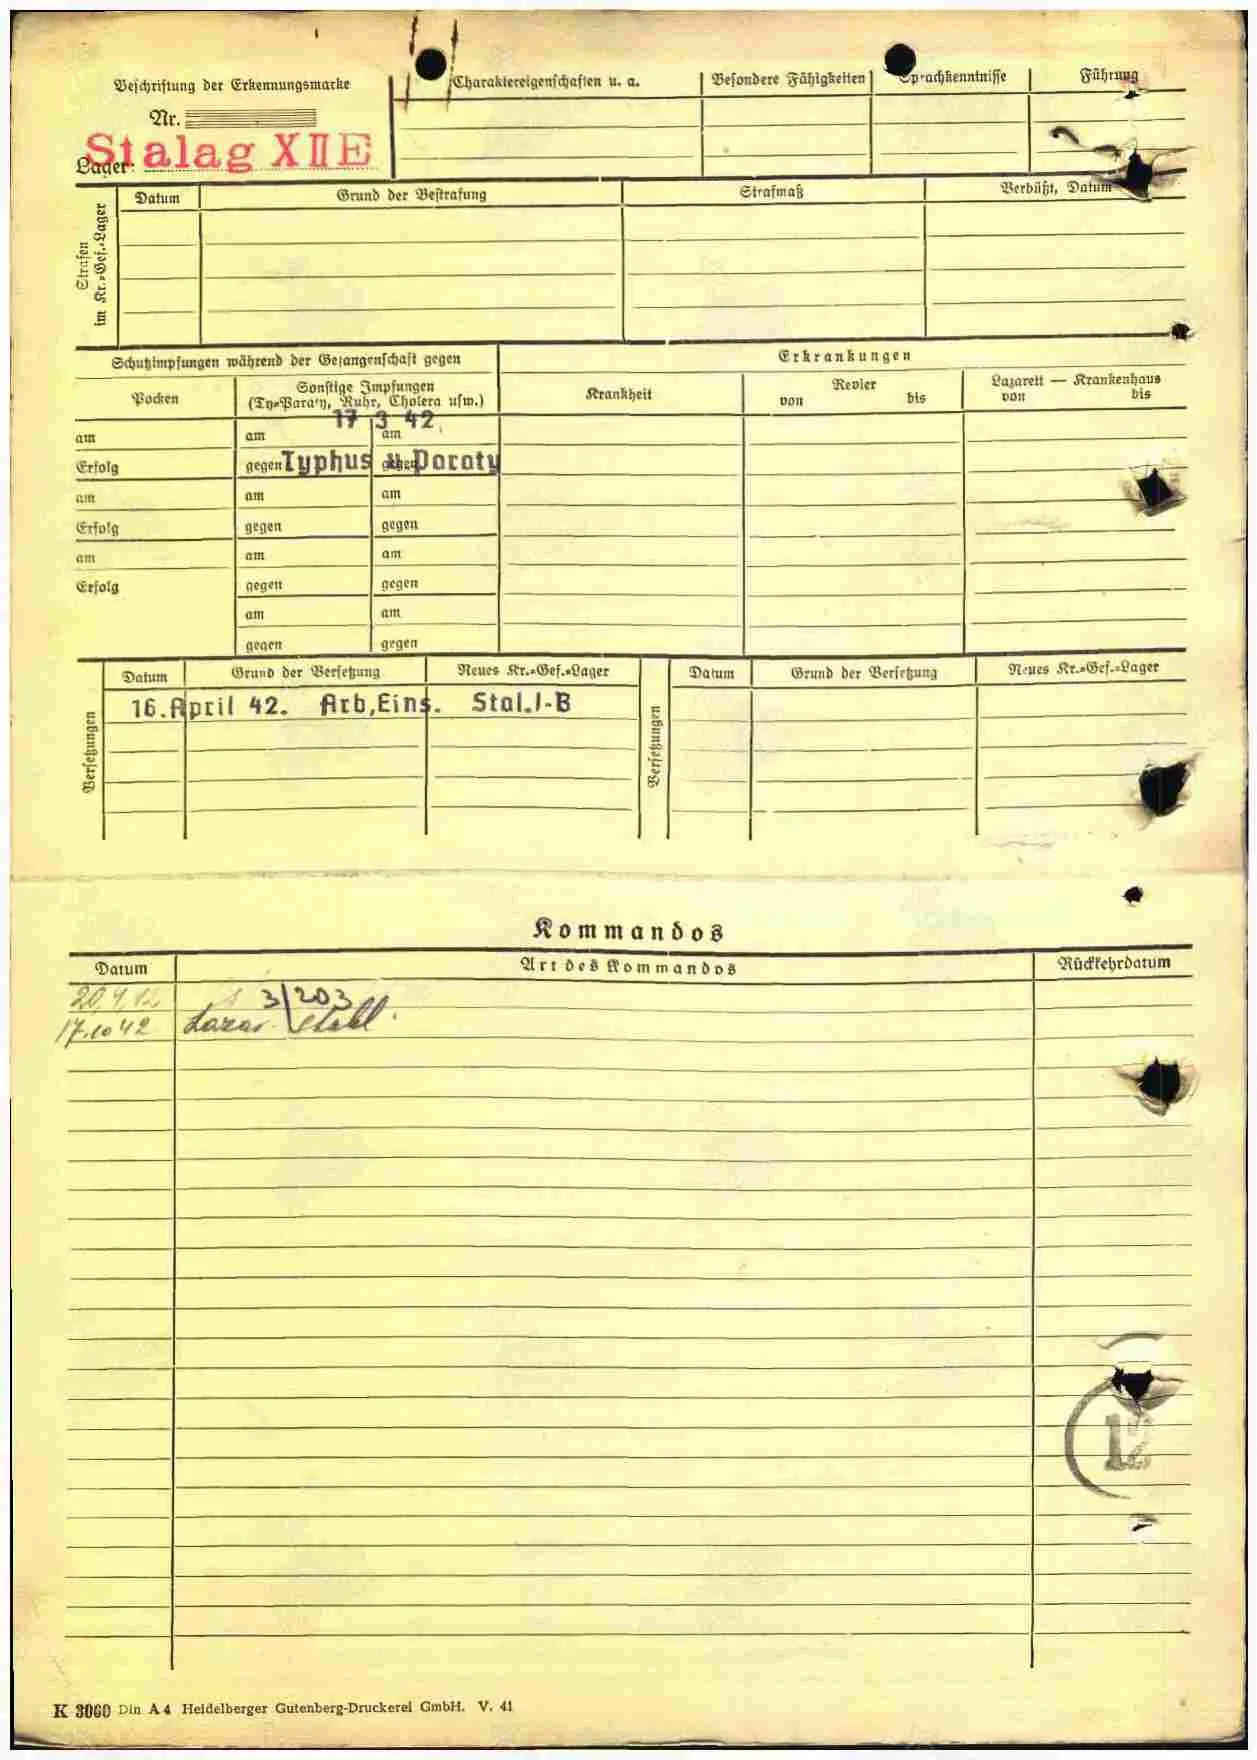 Beschriftung der Erkennungsmarke
Nr.
Lager: Stalag XII E
Charaktereigenschaften u. a.
Besondere Fähigkeiten
Sprachkenntnisse
Führung
Strafen
im Kr.-Gef.-Lager
Datum
Grund der Bestrafung
Strafmaß
Verbüßt, Datum
Schutzimpfungen während der Gefangenschaft gegen
Erkrankungen
Pocken
Sonstige Impfungen
(Ty-Paraty, Ruhr, Cholera usw.)
Krankheit
Revier
von bis
Lazarett — Krankenhaus
von bis
17 3 42
am am am
Erfolg gegen Typhus u gegen Paraty
am am am
Erfolg gegen gegen
am am am
Erfolg gegen gegen
am am
gegen gegen
Versetzungen
Datum Grund der Versetzung Neues Kr.-Gef.-Lager
16. April 42. Arb,Eins. Stal. I-B
Versetzungen
Datum Grund der Versetzung Neues Kr.-Gef.-Lager
Kommandos
Datum Art des Kommandos Rückkehrdatum
20.4. 3/203
17.10 42 Lazar.
12
K 3060 Din A 4 Heidelberger Gutenberg-Druckerei GmbH. V. 41